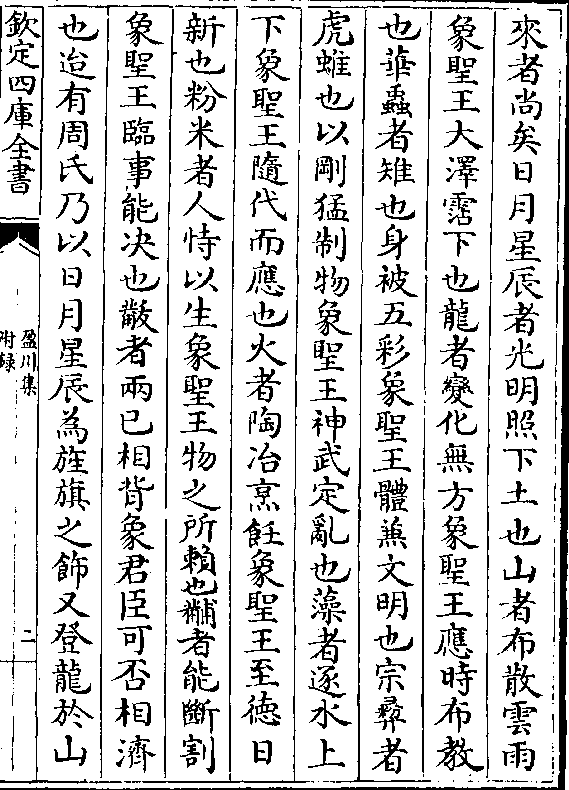 來者尚矣日月星辰者光明照下土也山者布散雲雨
象聖王大澤霑下也龍者變化無方象聖王應時布教
也華蟲者雉也身被五彩象聖王體兼文明也宗彛者
虎蜼也以剛猛制物象聖王神武定亂也藻者逐水上
下象聖王隨代而應也火者陶冶烹飪象聖王至德日
新也粉米者人恃以生象聖王物之所賴也黼者能斷割
象聖王臨事能决也黻者兩己相背象君臣可否相濟
也迨有周氏乃以日月星辰為旌旗之飾又登龍於山
欽定四庫全書
盈川集
附録
二